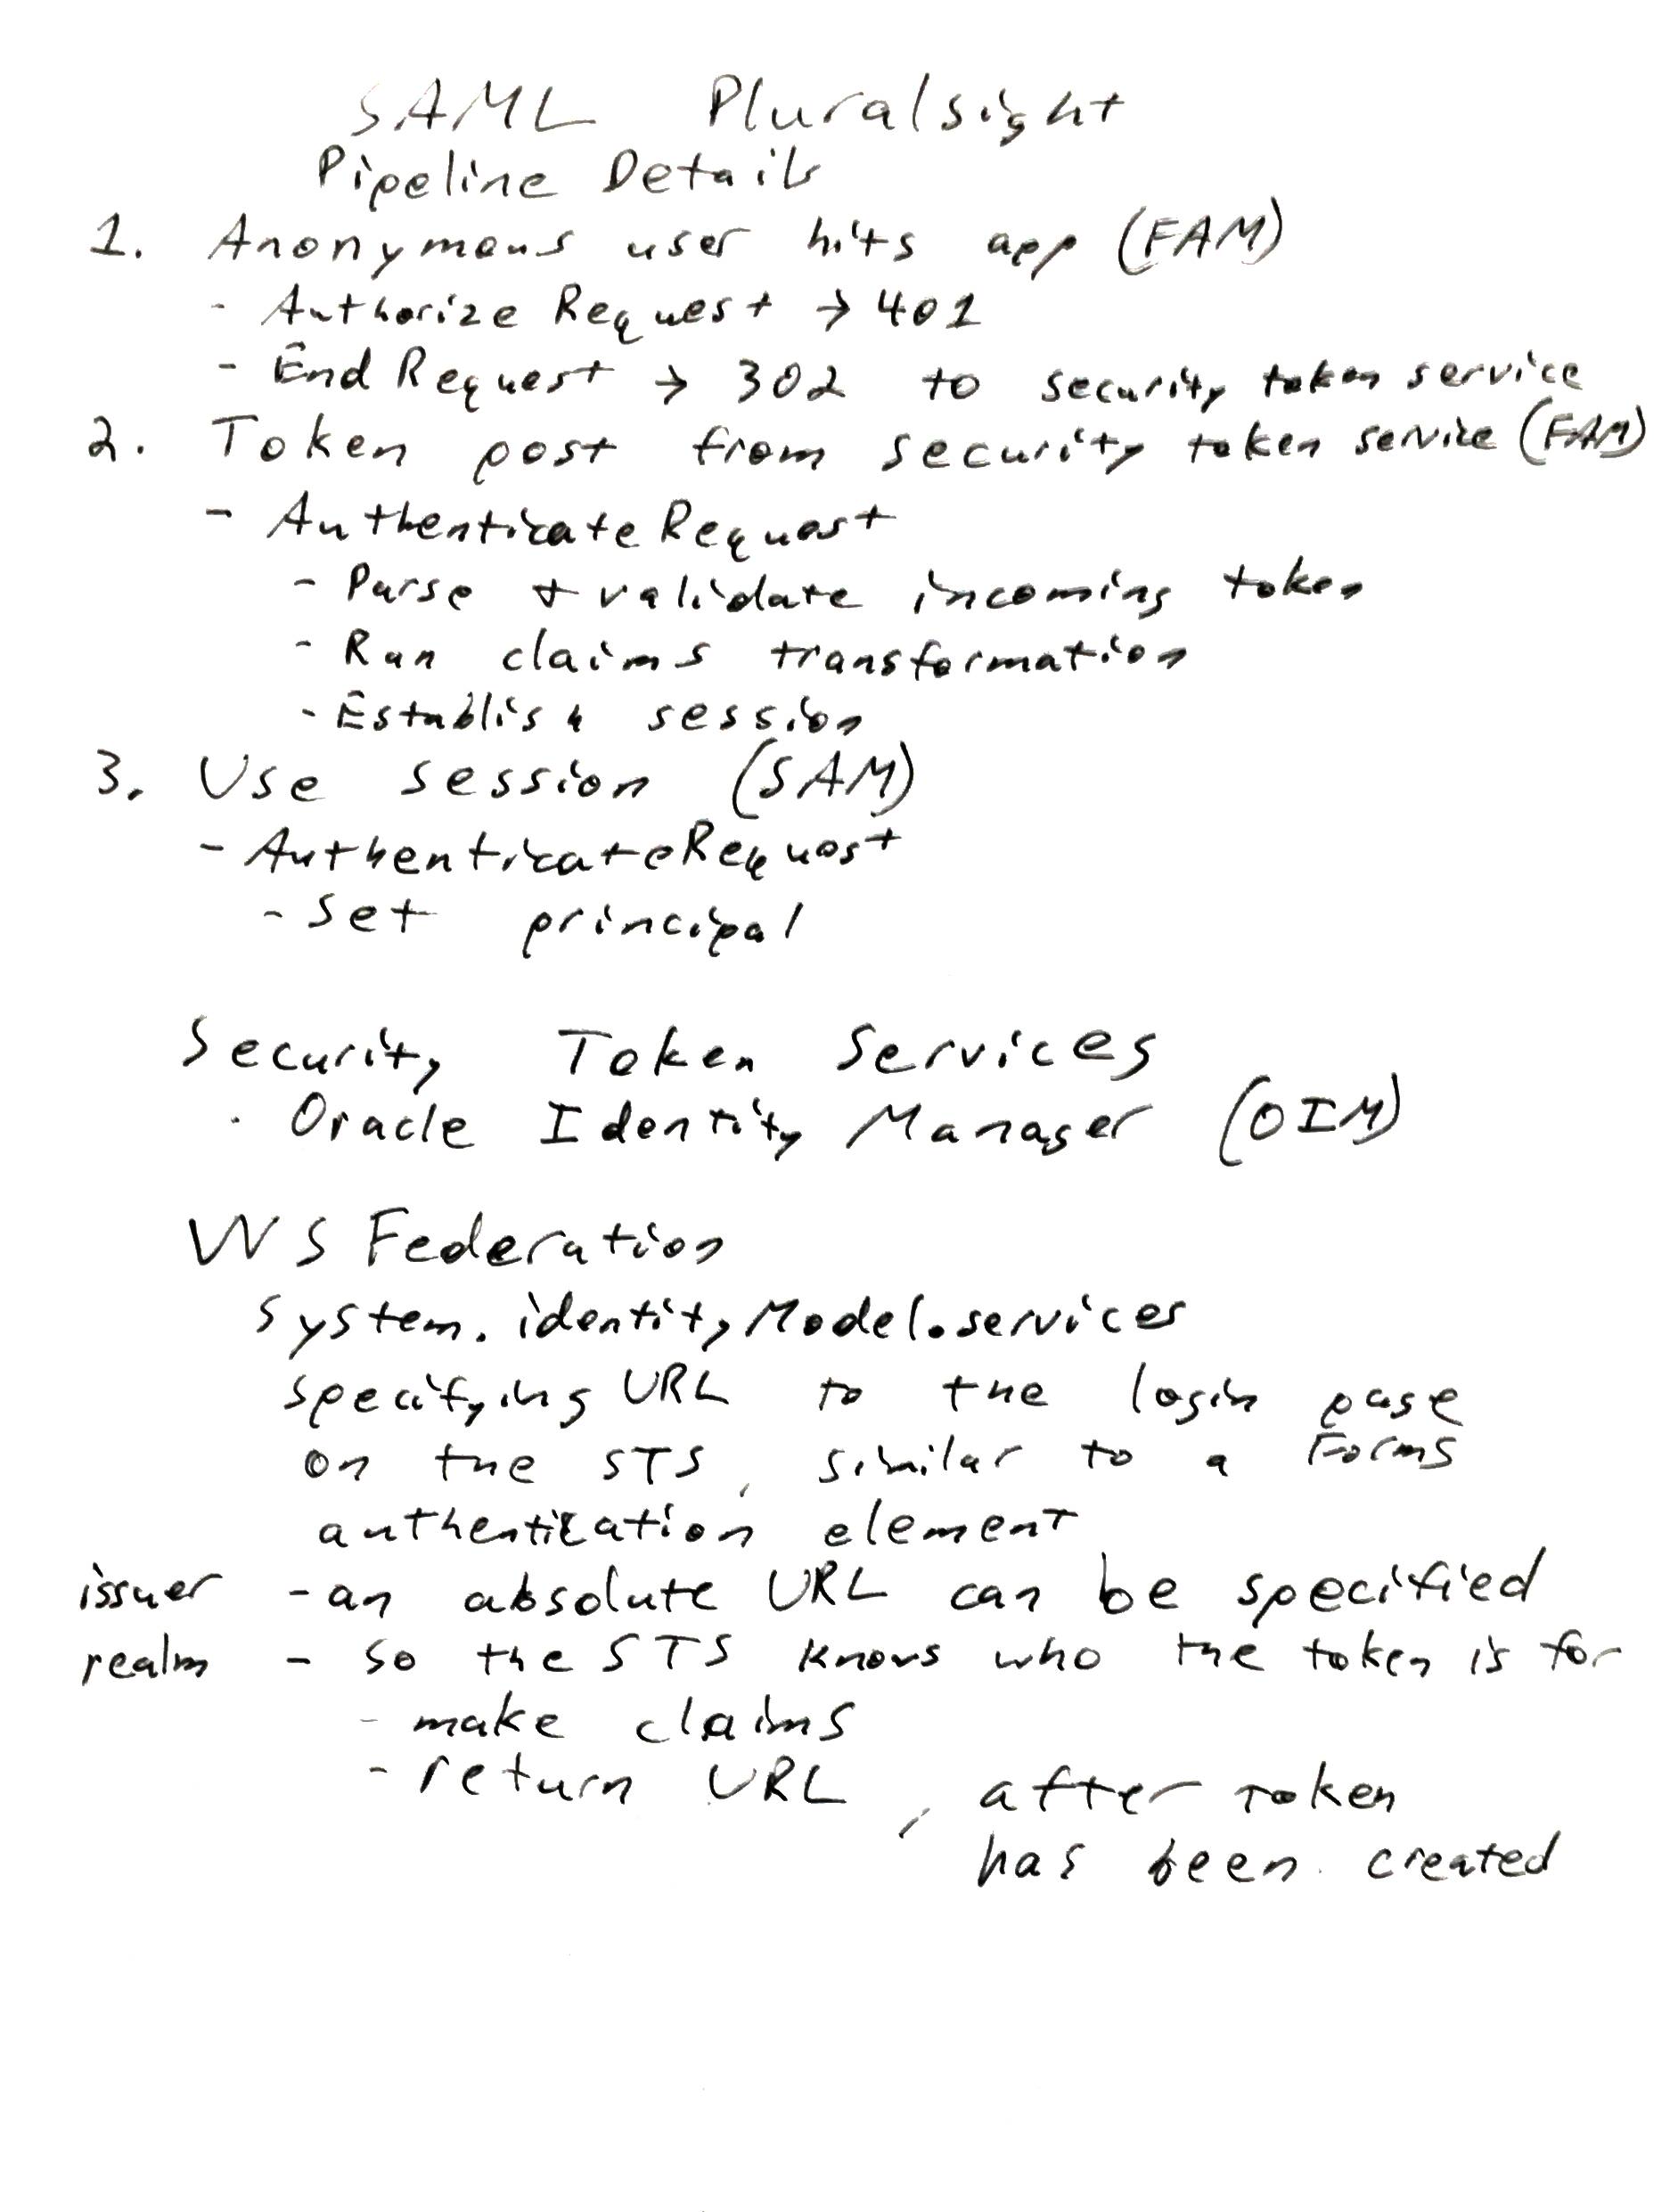 SAML Pluralsight
Pipeline Details
1. Anonymous user hits app (FAM)
- Authorize Request → 401
- End Request → 302 to security token service
2. Token post from security token service (FAM)
- AuthenticateRequest
- Parse + validate incoming token
- Run claims transformation
- Establish session
3. Use session (SAM)
- AuthenticateRequest
- Set principal
Security Token Services
· Oracle Identity Manager (OIM)
WS Federation
system.identityModel.services
specifying URL to the login page
on the STS, similar to a Forms
authentication element
issuer - an absolute URL can be specified
realm - so the STS knows who the token is for
- make claims
- return URL, after token
has been created